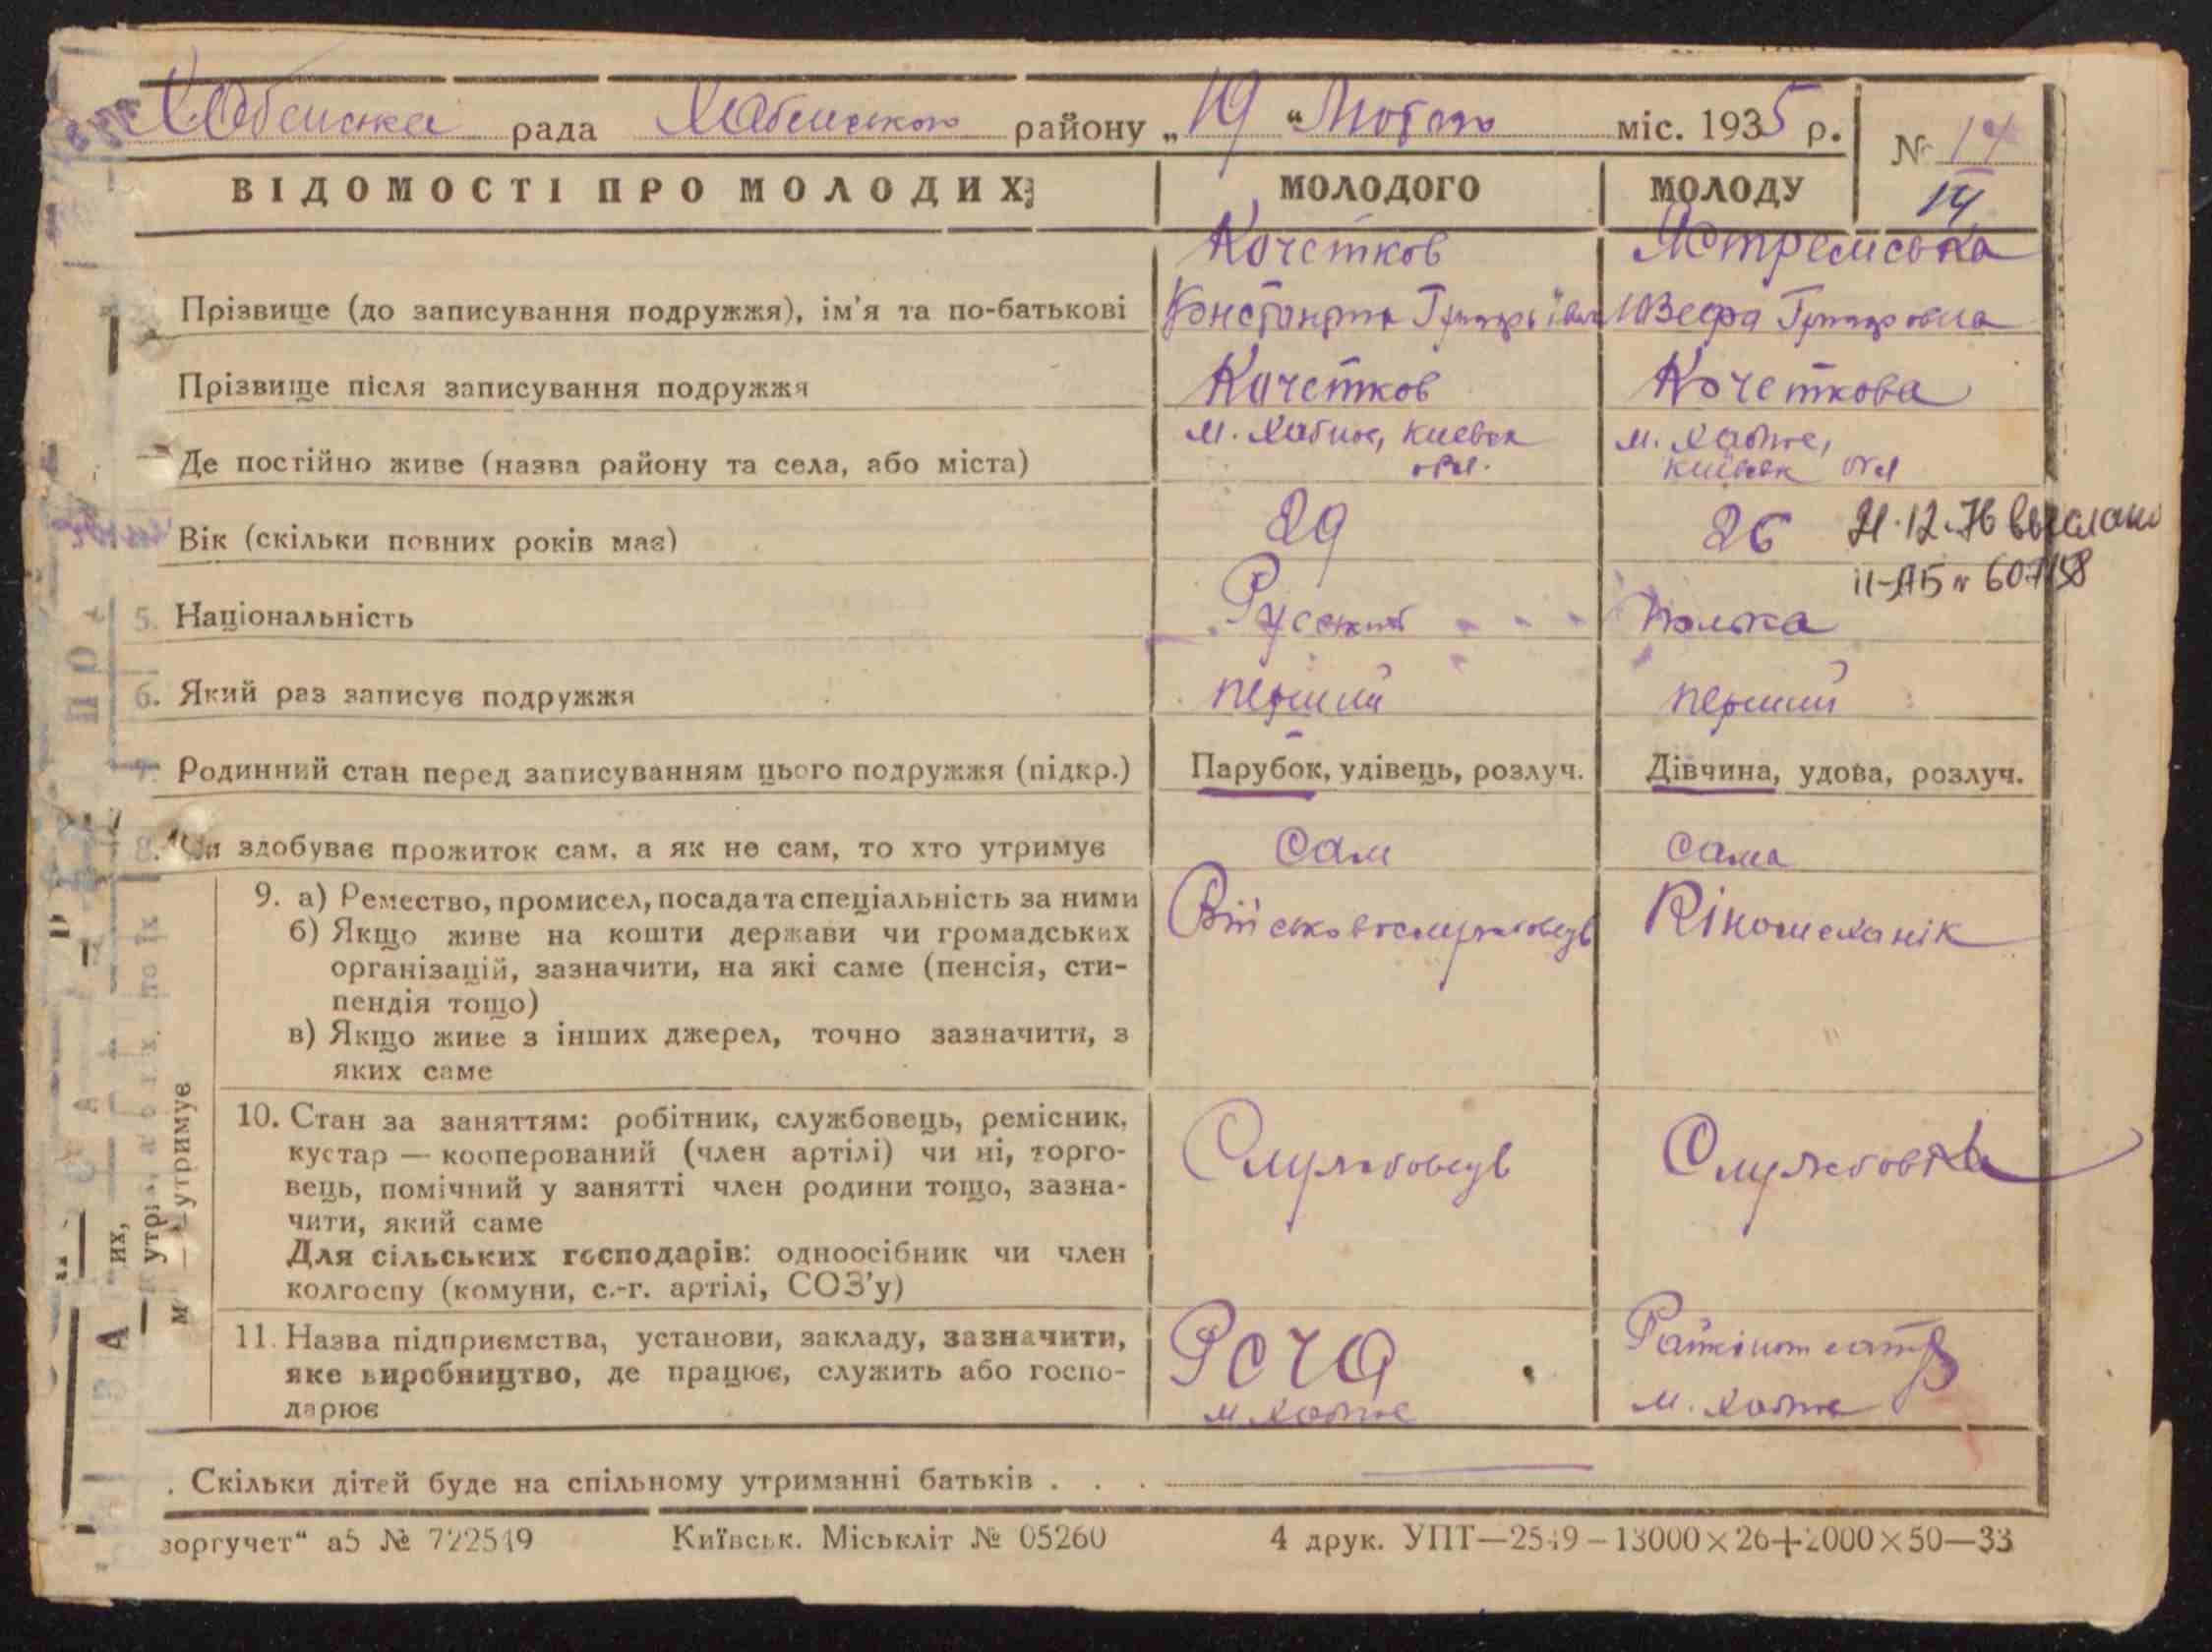 Хабенська рада Хабенського району „19 “ Лютого міс. 1935 р.
№ 14
ВІДОМОСТІ ПРО МОЛОДИХ: МОЛОДОГО МОЛОДУ 14
Кочетков Ястремська
Прізвище (до записування подружжя), ім'я та по-батькові Константин Юзефа
Прізвище після записування подружжя Кочетков Кочеткова
Де постійно живе (назва району та села, або міста) м. Хабное, Киевск обл. м. Хабне, Київськ обл
Вік (скільки повних років має) 29 26 21.12.76 выслано
II-АБ № 607158
5. Національність Русский полька
6. Який раз записує подружжя перший перший
Родинний стан перед записуванням цього подружжя (підкр.) Парубок, удівець, розлуч. Дівчина, удова, розлуч.
8. Чи здобуває прожиток сам, а як не сам, то хто утримує сам сама
9. а) Ремество, промисел, посада та спеціальність за ними Військовослужбовець Кіномеханік
б) Якщо живе на кошти держави чи громадських
організацій, зазначити, на які саме (пенсія, сти-
пендія тощо)
в) Якщо живе з інших джерел, точно зазначити, з
яких саме
10. Стан за заняттям: робітник, службовець, ремісник,
кустар — кооперований (член артілі) чи ні, торго- Службовець Службовка
вець, помічний у занятті член родини тощо, зазна-
чити, який саме
Для сільських господарів: одноосібник чи член
колгоспу (комуни, с.-г. артілі, СОЗ'у)
11. Назва підприємства, установи, закладу, зазначити, Райкінотеатр
яке виробництво, де працює, служить або госпо-
дарює м. Хабне м. Хабне
утримує
их,
. Скільки дітей буде на спільному утриманні батьків . . .
зоргучет“ а5 № 722519 Київськ. Міськліт № 05260 4 друк. УПТ—2549—13000×26+2000×50—33